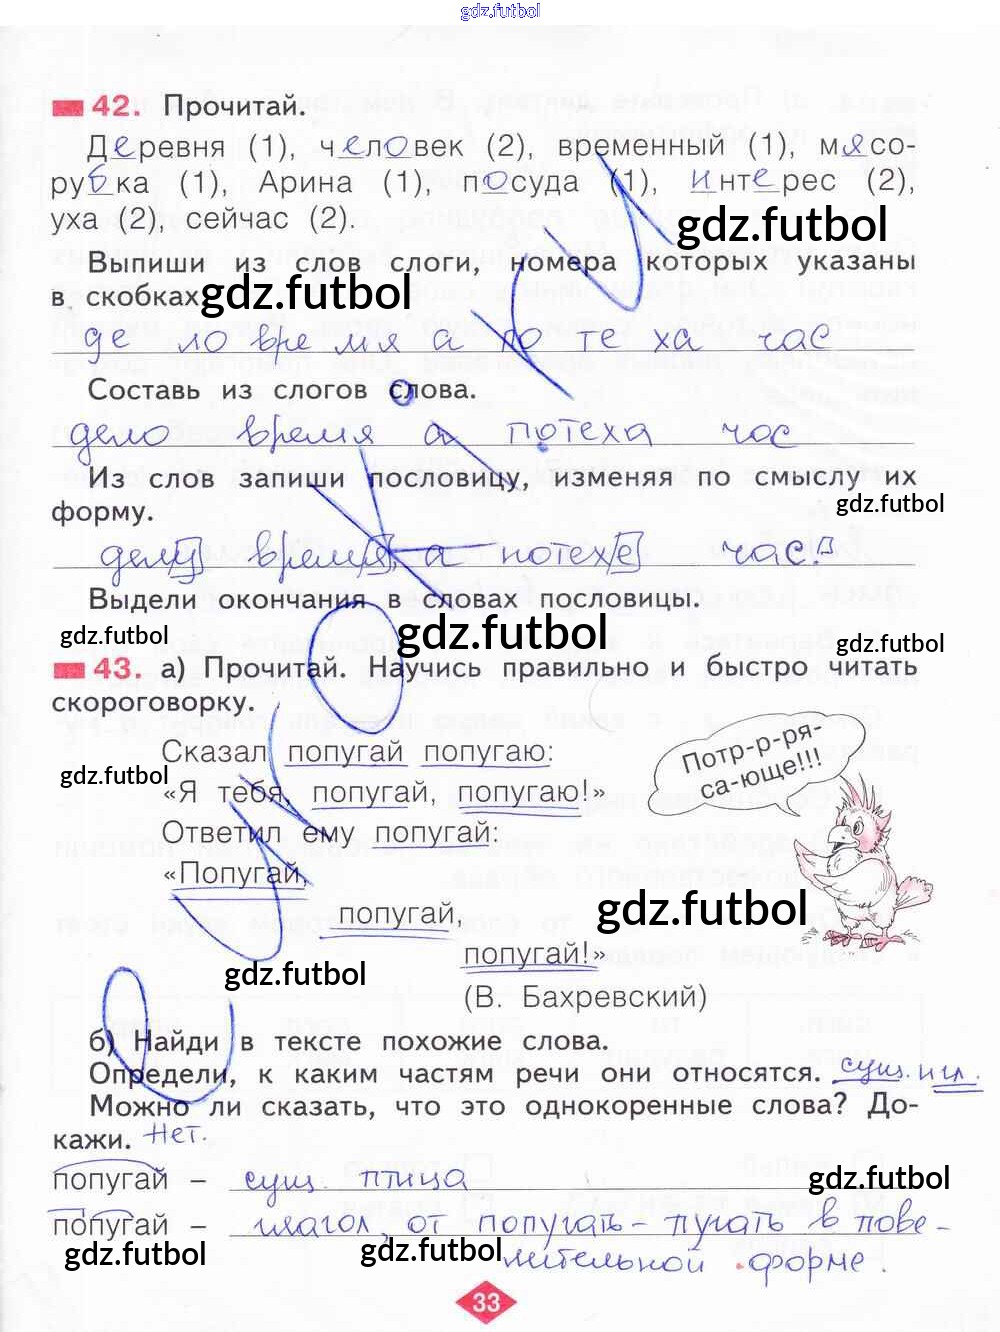 gdz.futbol
42. Прочитай.
Деревня (1), человек (2), временный (1), мясо-
рубка (1), Арина (1), посуда (1), интерес (2),
уха (2), сейчас (2).
gdz.futbol
Выпиши из слов слоги, номера которых указаны
в скобках
gdz.futbol
де ло вре мя а по те ха час
Составь из слогов слова.
дело время а потеха час
Из слов запиши пословицу, изменяя по смыслу их
gdz.futbol
форму.
делу время, а потехе час.
Выдели окончания в словах пословицы.
gdz.futbol gdz.futbol gdz.futbol
43. а) Прочитай. Научись правильно и быстро читать
скороговорку.
Сказал попугай попугаю:
Потр-р-ря-
са-юще!!!
gdz.futbol
«Я тебя, попугай, попугаю!»
Ответил ему попугай:
«Попугай,
попугай,
gdz.futbol
попугай!»
gdz.futbol gdz.futbol
(В. Бахревский)
б) Найди в тексте похожие слова.
Определи, к каким частям речи они относятся. сущ. и гл.
Можно ли сказать, что это однокоренные слова? До-
кажи. Нет.
попугай – сущ. птица
gdz.futbol
попугай – глагол, от попугать - пугать в пове-
gdz.futbol gdz.futbol
лительной форме.
33